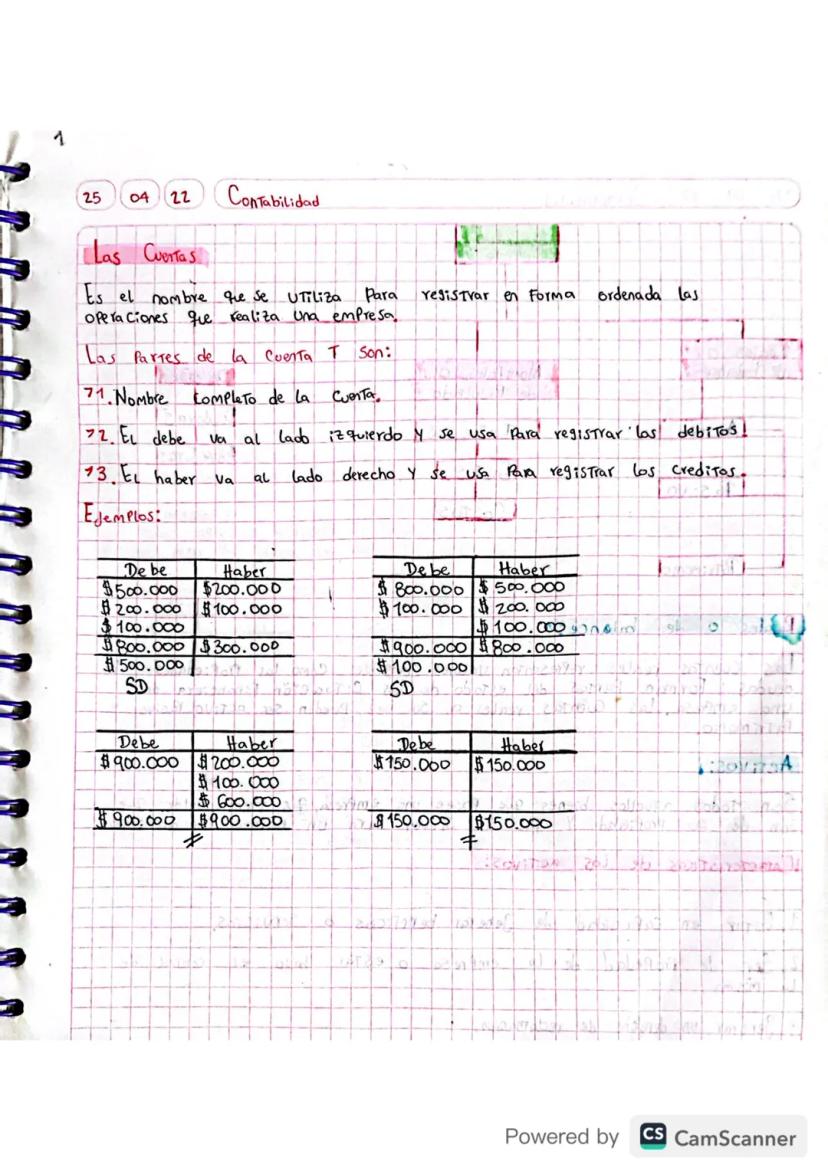 1
25 04 22 Contabilidad
Las Cuentas
Es el nombre que se utiliza para registrar en forma ordenada las
operaciones que realiza una empresa.
Las Partes de la Cuenta T son:
1. Nombre completo de la cuenta.
2. El debe va al lado izquierdo y se usa para registrar los debitos.
3. El haber va al lado derecho y se usa para registrar los creditos.
Ejemplos:
Debe Haber
$500.000 $200.000
$200.000 $100.000
$100.000
$800.000 $300.000
$500.000
SD
Debe Haber
$800.000 $500.000
$100.000 $200.000
$100.000
$900.000 $800.000
$100.000
SD
Debe Haber
$900.000 $200.000
$100.000
$600.000
$900.000 $900.000
Debe Haber
$150.000 $150.000
$150.000 $150.000
Powered by CS CamScanner